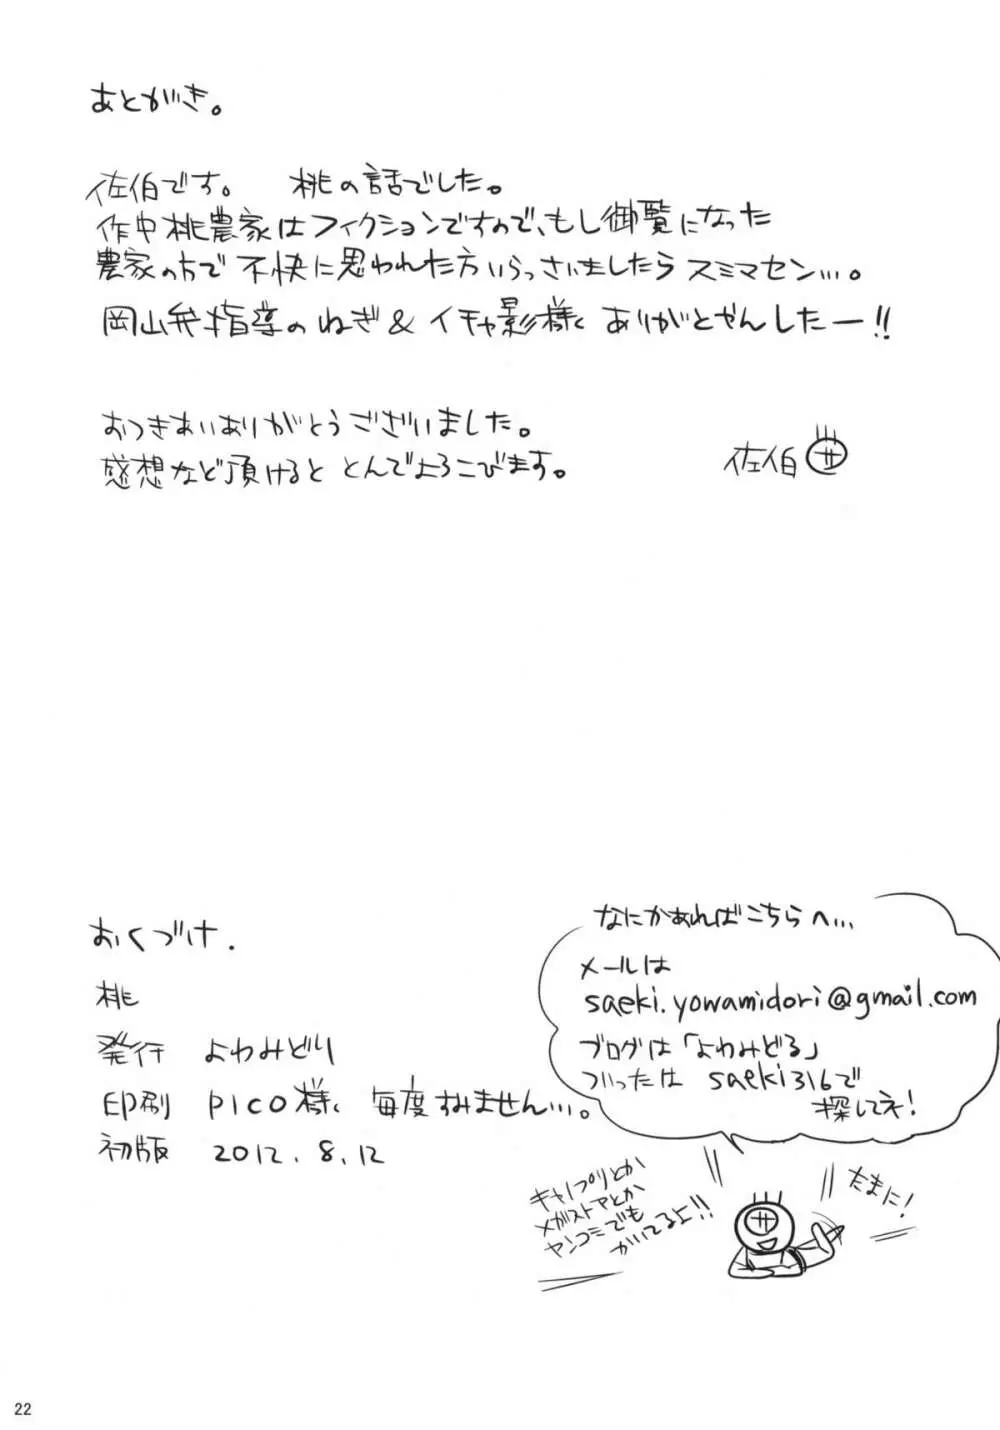 あとがき。
佐伯です。 桃の話でした。
作中桃農家はフィクションですので、もし御覧になった
農家の方で不快に思われた方いらっさいましたらスミマセン…。
岡山弁指導のねぎ&イチャ影様〱 ありがとやんしたー!!
おつきあいありがとうございました。
感想など頂けると とんでよろこびます。
佐伯サ
おくづけ.
桃
発行 よわみどり
印刷 PICO様〱 毎度すみません…。
初版 2012.8.12
なにかあればこちらへ…
メールは
saeki.yowamidori@gmail.com
ブログは「よわみどる」
ついったは saeki316で
探してネ!
キャノプリとか
メガストアとか
ヤンコミでも
かいてるよ!!
たまに!
サ
22